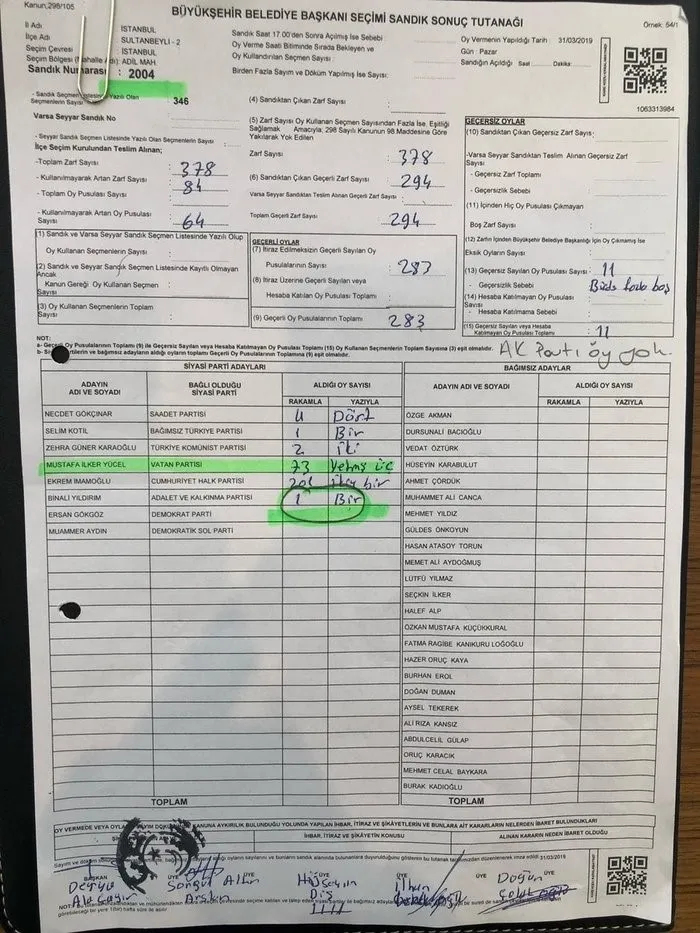 Kanun,298/105
BÜYÜKŞEHİR BELEDİYE BAŞKANI SEÇİMİ SANDIK SONUÇ TUTANAĞI
Örnek: 54/1
İl Adı İSTANBUL
İlçe Adı SULTANBEYLİ - 2
Seçim Çevresi İSTANBUL
Seçim Bölgesi (Mahalle Adı): ADİL MAH.
Sandık Numarası : 2004
Sandık Saat 17:00'den Sonra Açılmış İse Sebebi :
Oy Verme Saati Bitiminde Sırada Bekleyen ve
Oy Kullandırılan Seçmen Sayısı :
Birden Fazla Sayım ve Döküm Yapılmış İse Sayısı :
Oy Vermenin Yapıldığı Tarih : 31/03/2019
Gün : Pazar
Sandığın Açıldığı Saat : Dakika:
1063313984
- Sandık Seçmen Listesinde Yazılı Olan
Seçmenlerin Sayısı : 346
Varsa Seyyar Sandık No
- Seyyar Sandık Seçmen Listesinde Yazılı Olan Seçmenlerin Sayısı :
İlçe Seçim Kurulundan Teslim Alınan;
-Toplam Zarf Sayısı : 378
- Kullanılmayarak Artan Zarf Sayısı : 84
- Toplam Oy Pusulası Sayısı :
- Kullanılmayarak Artan Oy Pusulası
Sayısı : 64
(4) Sandıktan Çıkan Zarf Sayısı :
(5) Zarf Sayısı Oy Kullanan Seçmen Sayısından Fazla İse, Eşitliği
Sağlamak Amacıyla; 298 Sayılı Kanunun 98.Maddesine Göre
Yakılarak Yok Edilen
Zarf Sayısı : 378
(6) Sandıktan Çıkan Geçerli Zarf Sayısı : 294
Varsa Seyyar Sandıktan Teslim Alınan Geçerli Zarf Sayısı :
Toplam Geçerli Zarf Sayısı : 294
GEÇERSİZ OYLAR
(10) Sandıktan Çıkan Geçersiz Zarf Sayısı :
-Varsa Seyyar Sandıktan Teslim Alınan Geçersiz Zarf
Sayısı :
- Geçersiz Zarf Toplamı :
- Geçersizlik Sebebi :
(11) İçinden Hiç Oy Pusulası Çıkmayan
Boş Zarf Sayısı :
(12) Zarfın İçinden Büyükşehir Belediye Başkanlığı İçin Oy Çıkmamış İse
Eksik Oyların Sayısı :
(13) Geçersiz Sayılan Oy Pusulası Sayısı : 11
- Geçersizlik Sebebi :
(14) Hesaba Katılmayan Oy Pusulası
Sayısı :
- Hesaba Katılmama Sebebi :
(15) Geçersiz Sayılan veya Hesaba
Katılmayan Oy Pusulası Toplamı : 11
(1) Sandık ve Varsa Seyyar Sandık Seçmen Listesinde Yazılı Olup
Oy Kullanan Seçmenlerin Sayısı :
(2) Sandık ve Seyyar Sandık Seçmen Listesinde Kayıtlı Olmayan
Ancak
Kanun Gereği Oy Kullanan Seçmen
Sayısı :
(3) Oy Kullanan Seçmenlerin Toplam
Sayısı :
GEÇERLİ OYLAR
(7) İtiraz Edilmeksizin Geçerli Sayılan Oy
Pusulalarının Sayısı : 283
(8) İtiraz Üzerine Geçerli Sayılan veya
Hesaba Katılan Oy Pusulası Toplamı :
(9) Geçerli Oy Pusulalarının Toplamı : 283
NOT:
a- Geçerli Oy Pusulalarının Toplamı (9) ile Geçersiz Sayılan veya Hesaba Katılmayan Oy Pusulası Toplamı (15) Oy Kullanan Seçmenlerin Toplam Sayısına (3) eşit olmalıdır.
AK Parti oy yok.
SİYASİ PARTİ ADAYLARI
ADAYIN ADI VE SOYADI BAĞLI OLDUĞU SİYASİ PARTİ ALDIĞI OY SAYISI
RAKAMLA YAZIYLA
NECDET GÖKÇINAR SAADET PARTİSİ 4 Dört
SELİM KOTİL BAĞIMSIZ TÜRKİYE PARTİSİ 1 Bir
ZEHRA GÜNER KARAOĞLU TÜRKİYE KOMÜNİST PARTİSİ 2 iki
MUSTAFA İLKER YÜCEL VATAN PARTİSİ 73 Yetmiş üç
EKREM İMAMOĞLU CUMHURİYET HALK PARTİSİ 201 bir
BİNALİ YILDIRIM ADALET VE KALKINMA PARTİSİ 1 Bir
ERSAN GÖKGÖZ DEMOKRAT PARTİ
MUAMMER AYDIN DEMOKRATİK SOL PARTİ
TOPLAM
BAĞIMSIZ ADAYLAR
ADAYIN ADI VE SOYADI ALDIĞI OY SAYISI
RAKAMLA YAZIYLA
ÖZGE AKMAN
DURSUNALİ BACIOĞLU
VEDAT ÖZTÜRK
HÜSEYİN KARABULUT
AHMET ÇÖRDÜK
MUHAMMET ALİ CANCA
MEHMET YILDIZ
GÜLDES ÖNKOYUN
HASAN ATASOY TORUN
MEMET ALİ AYDOĞMUŞ
LÜTFÜ YILMAZ
SEÇKİN İLKER
HALEF ALP
ÖZKAN MUSTAFA KÜÇÜKKURAL
FATMA RAGİBE KANIKURU LOĞOĞLU
HAZER ORUÇ KAYA
BURHAN EROL
DOĞAN DUMAN
AYSEL TEKEREK
ALİ RIZA KANSIZ
ABDULCELİL GÜLAP
ORUÇ KARACIK
MEHMET CELAL BAYKARA
BURAK KADIOĞLU
TOPLAM
KANUNA AYKIRILIK BULUNDUĞU YOLUNDA YAPILAN İHBAR, İTİRAZ VE ŞİKAYETLERİN VE BUNLARA AİT KARARLARIN NELERDEN İBARET BULUNDUKLARI
İHBAR, İTİRAZ VE ŞİKAYETİN KONUSU ALINAN KARARIN NEDEN İBARET OLDUĞU
31/03/2019
BAŞKAN ÜYE ÜYE ÜYE ÜYE
Derya Songül Hüseyin İlhan Doğun